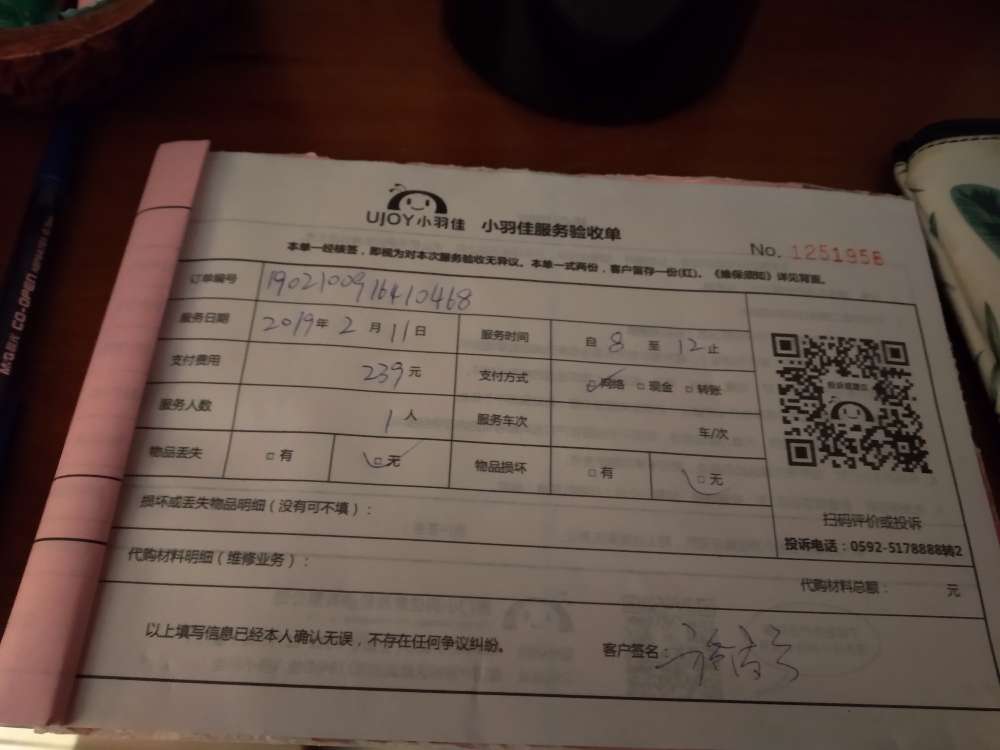 UJOY小羽佳 小羽佳服务验收单
No. 1251958
本单一经核签，即视为对本次服务验收无异议。本单一式两份，客户留存一份(红)。《维保须知》详见背面。
订单编号 1902100916410468
服务日期 2019年 2月 11日 服务时间 自 8 至 12 止
支付费用 239元 支付方式 □网络 □现金 □转账
服务人数 1人 服务车次 车/次
物品丢失 □有 □无 物品损坏 □有 □无
损坏或丢失物品明细（没有可不填）：
扫码评价或投诉
投诉电话：0592-5178888转2
代购材料明细（维修业务）：
代购材料总额： 元
以上填写信息已经本人确认无误，不存在任何争议纠纷。 客户签名：
M&G CO-OPEN